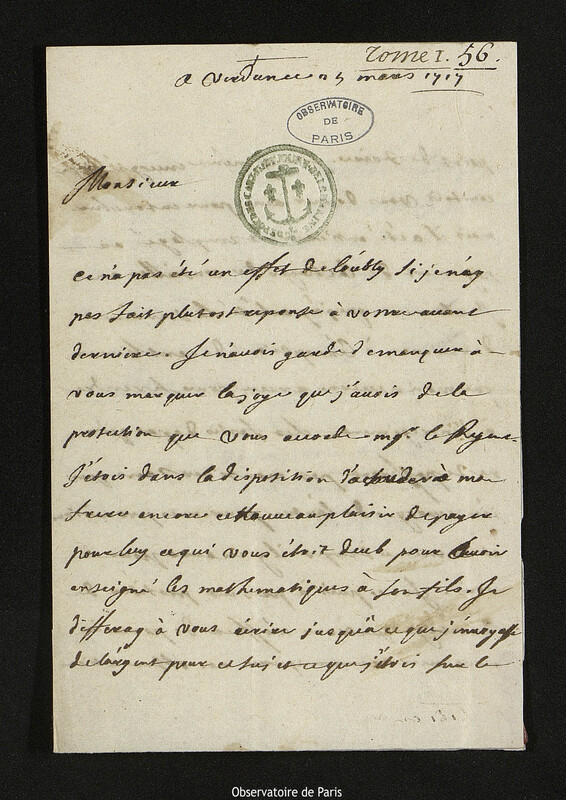 Tome I. 56.
a verdun ce 25 mars 1717
OBSERVATOIRE
DE
PARIS
Monsieur
ce n'a pas été un effet de l'oubly si je n'ay
pas fait plutost reponse à vostre avant
derniere. Je n'avois garde de manquer à
vous marquer la joye que j'avois de la
protection que vous accorde mgr. le Regent
J'étois dans la disposition d'achuder à mon
frere encore ce nouveau plaisir de payer
pour luy ce qui vous étoit deub pour avoir
enseigné les mathematiques à son fils. Je
differay à vous écrire jusqu'à ce que j'envoyasse
de l'argent pour ce sujet ce que j'étois sur le
Observatoire de Paris